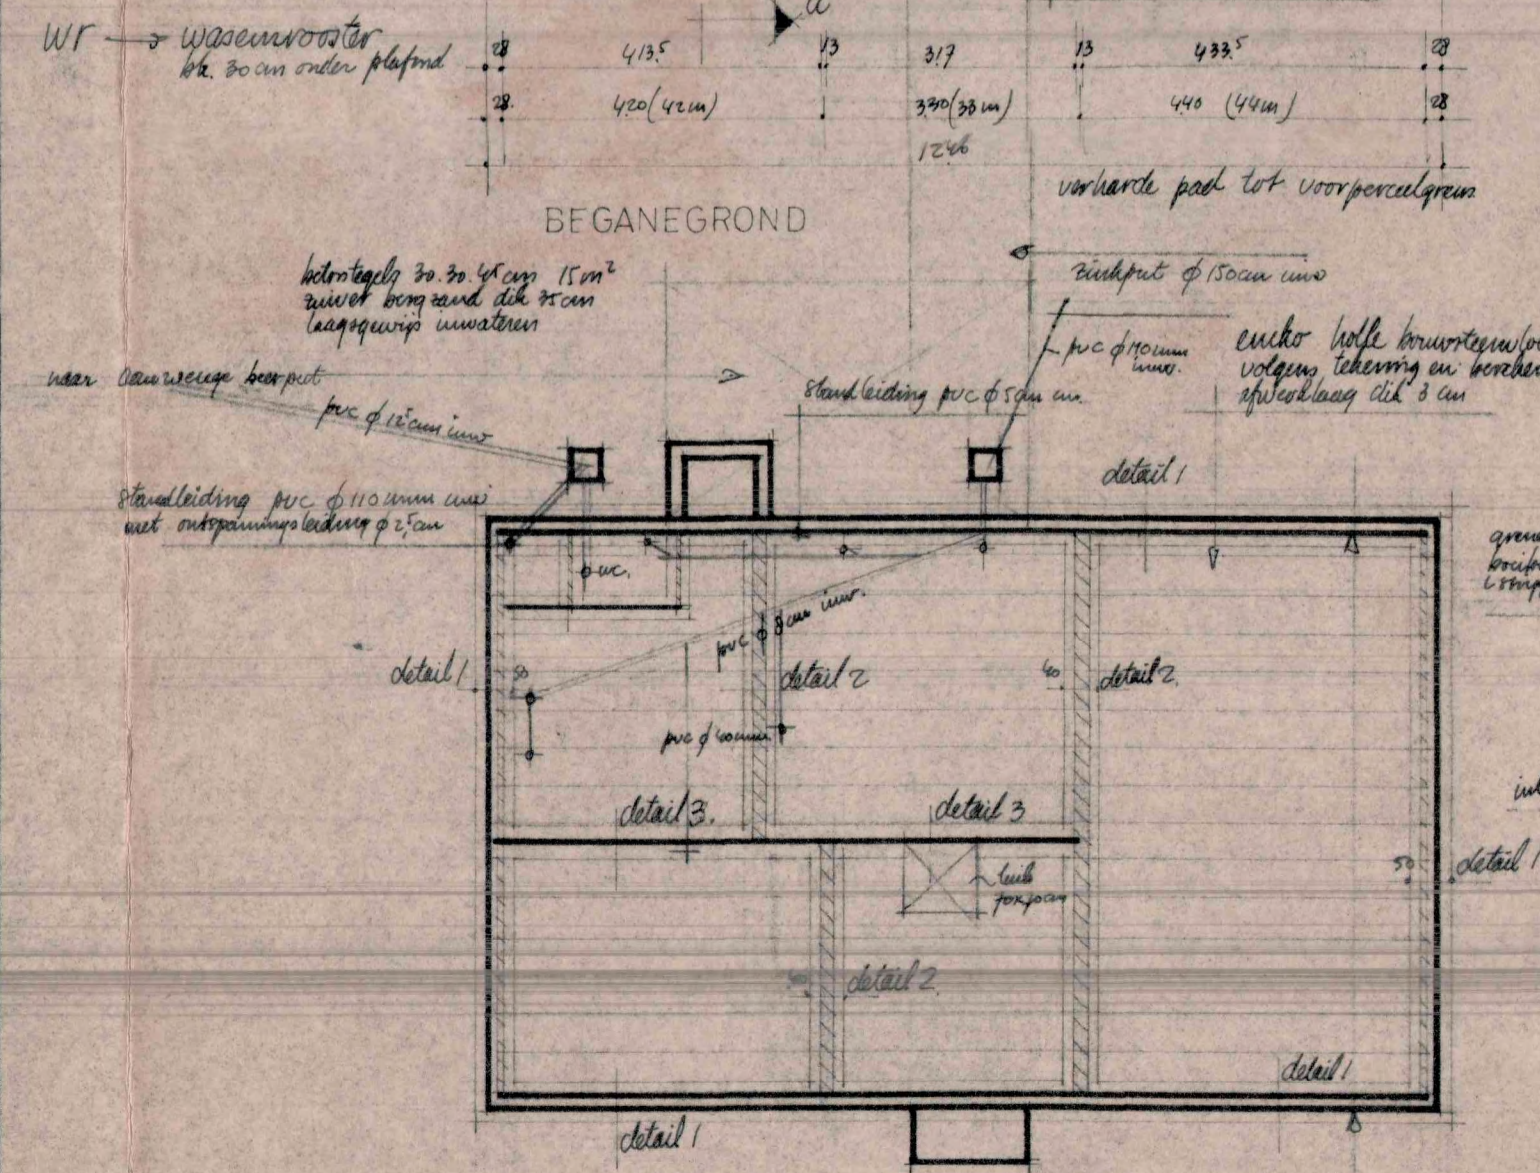 a
wr → wasemrooster
bk. 30 cm onder plafond
28 413⁵ 13 317 13 433⁵ 28
28 420 (42m) 330 (33m) 440 (44m) 28
1246
verharde pad tot voorperceelgrens
BEGANEGROND
betontegels 30.30.4⁵ cm 15m²
zuiver bergzand dik 35 cm
laagsgewijs inwateren
zinkput ϕ 150cm inw
pvc ϕ 110mm
inw.
holle bouwsteen
volgens tekening en
afwerklaag dik 3 cm
naar aanwezige beerput
pvc ϕ 12⁵ cm inw
standleiding pvc ϕ 5cm
standleiding pvc ϕ 110mm inw
met ontspanningsleiding ϕ 2⁵ cm
detail 1
wc.
pvc ϕ 8cm inw.
detail 1
50
detail 2
40
detail 2.
pvc ϕ 40mm.
detail 3.
detail 3
luik
70x70cm
50
detail 1
detail 2
detail 1
detail 1